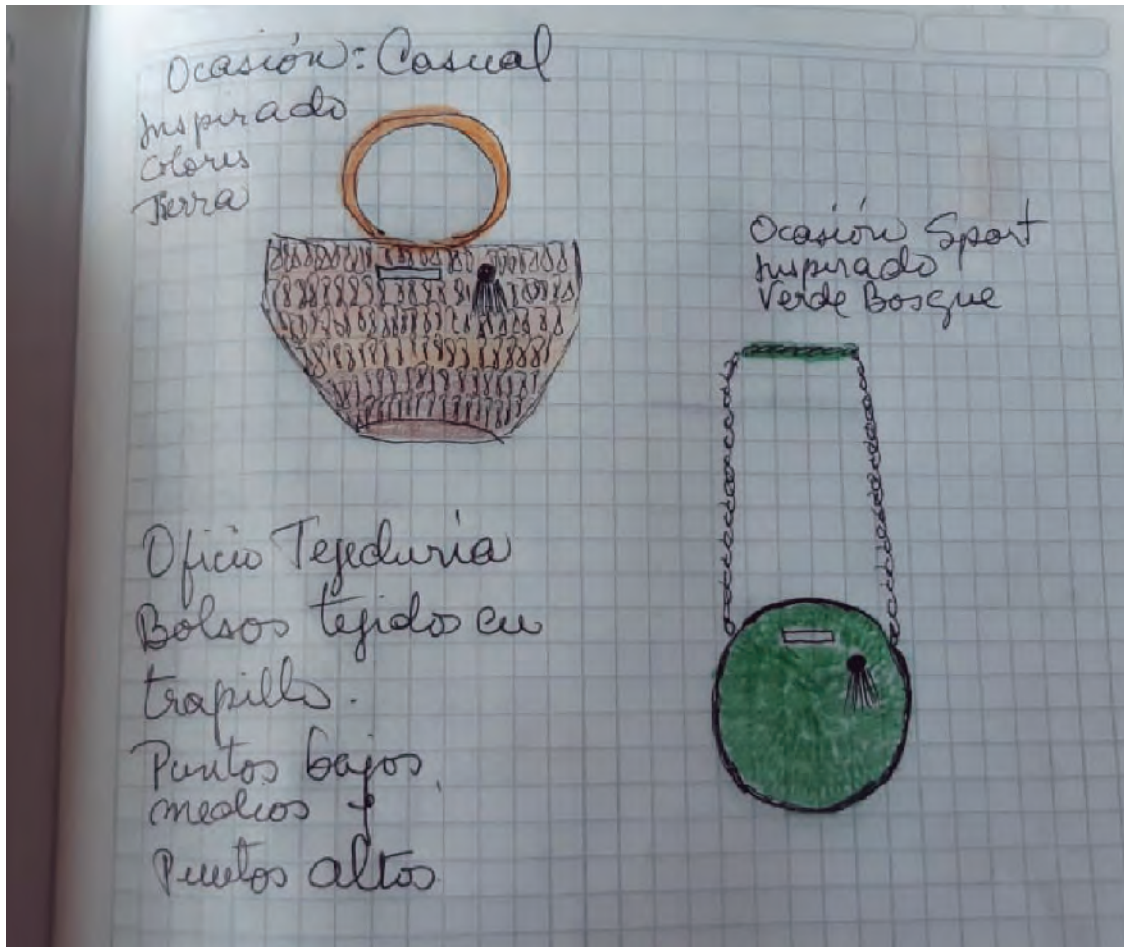 Ocasión: Casual
Inspirado
Colores
Tierra
Ocasión Sport
Inspirado
Verde Bosque
Oficio Tejeduría
Bolsos tejidos en
trapillo.
Puntos bajos,
medios y
Puntos altos